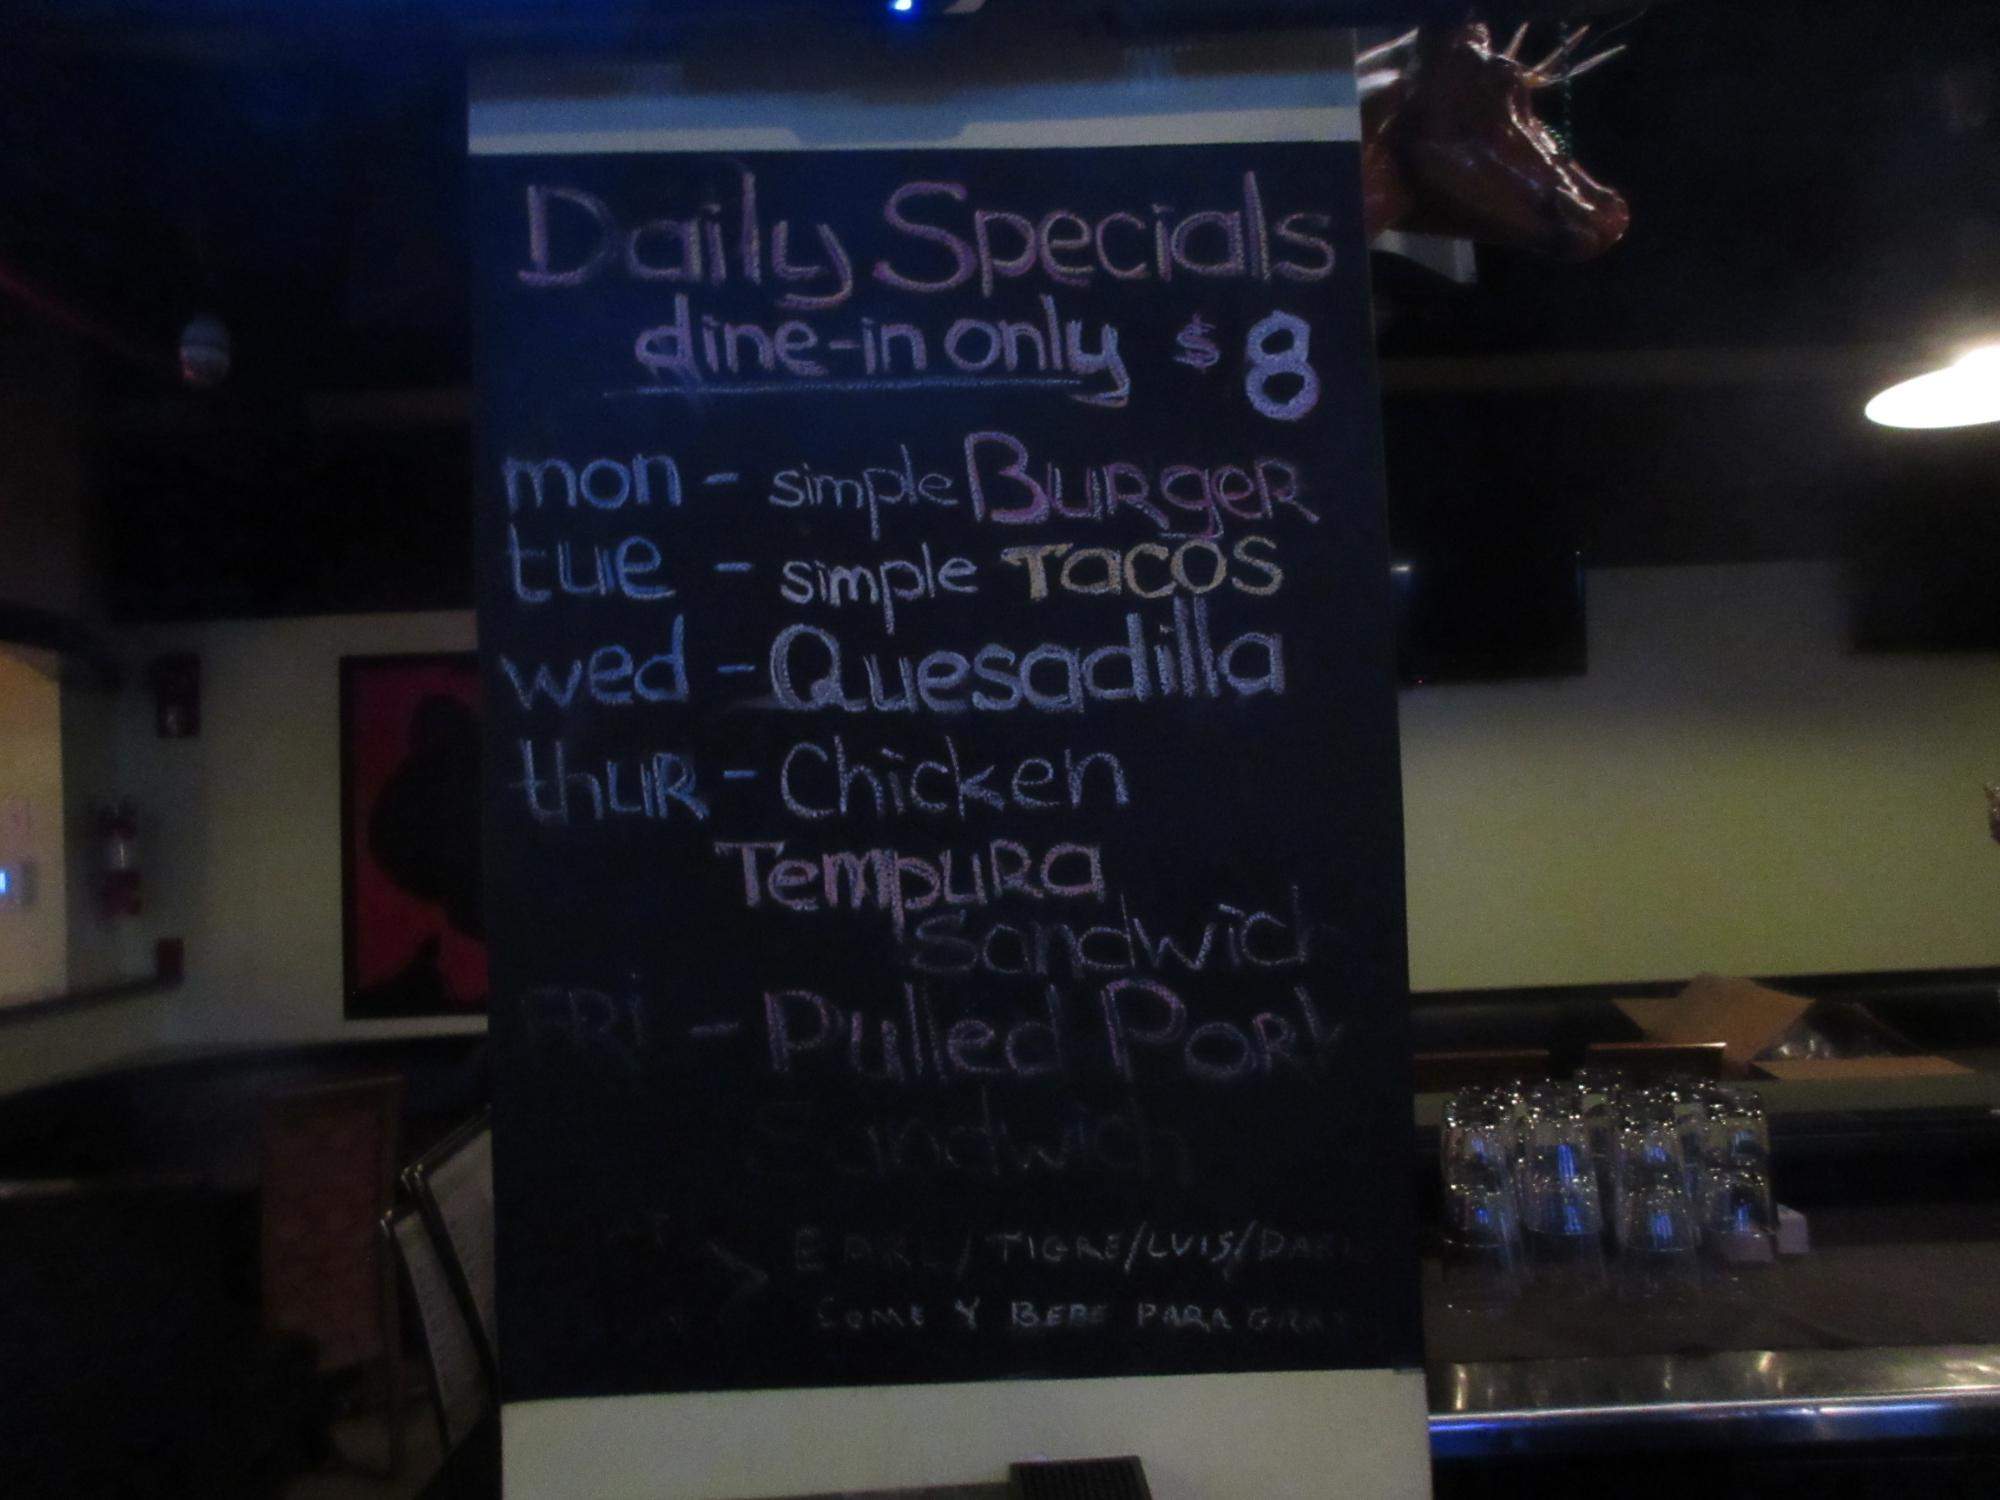 Daily Specials
dine-in only $8
mon - simple BURgeR
tue - simple Tacos
wed - Quesadilla
thuR - Chicken
TempuRa
Sandwich
FRi - Pulled PORk
Sandwich
EARL/TIGRE/LUIS/
COME Y BEBE PARA